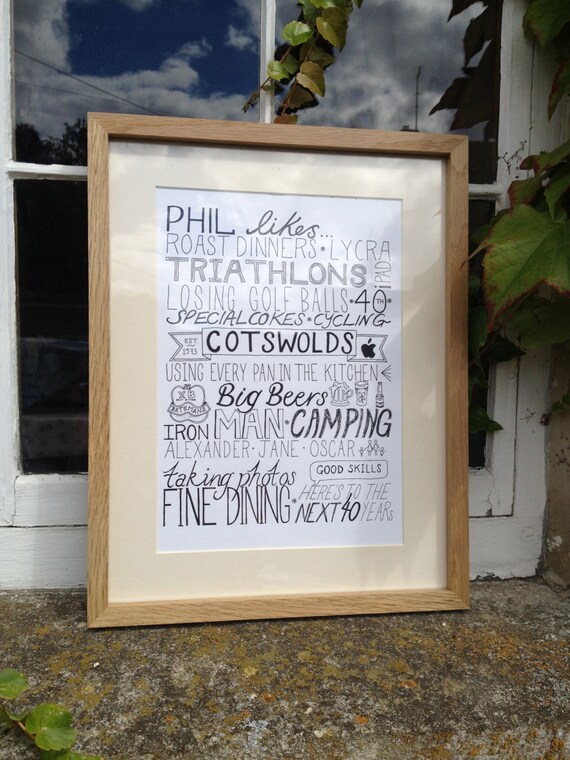 PHIL likes...
ROAST DINNERS • LYCRA
TRIATHLONS iPAD
LOSING GOLF BALLS • 40TH •
SPECIAL COKES • CYCLING
EST 1973 COTSWOLDS
USING EVERY PAN IN THE KITCHEN
XB BATEMANS Big Beers
IRON MAN • CAMPING
ALEXANDER • JANE • OSCAR
taking photos GOOD SKILLS
FINE DINING • HERE'S TO THE NEXT 40 YEARS